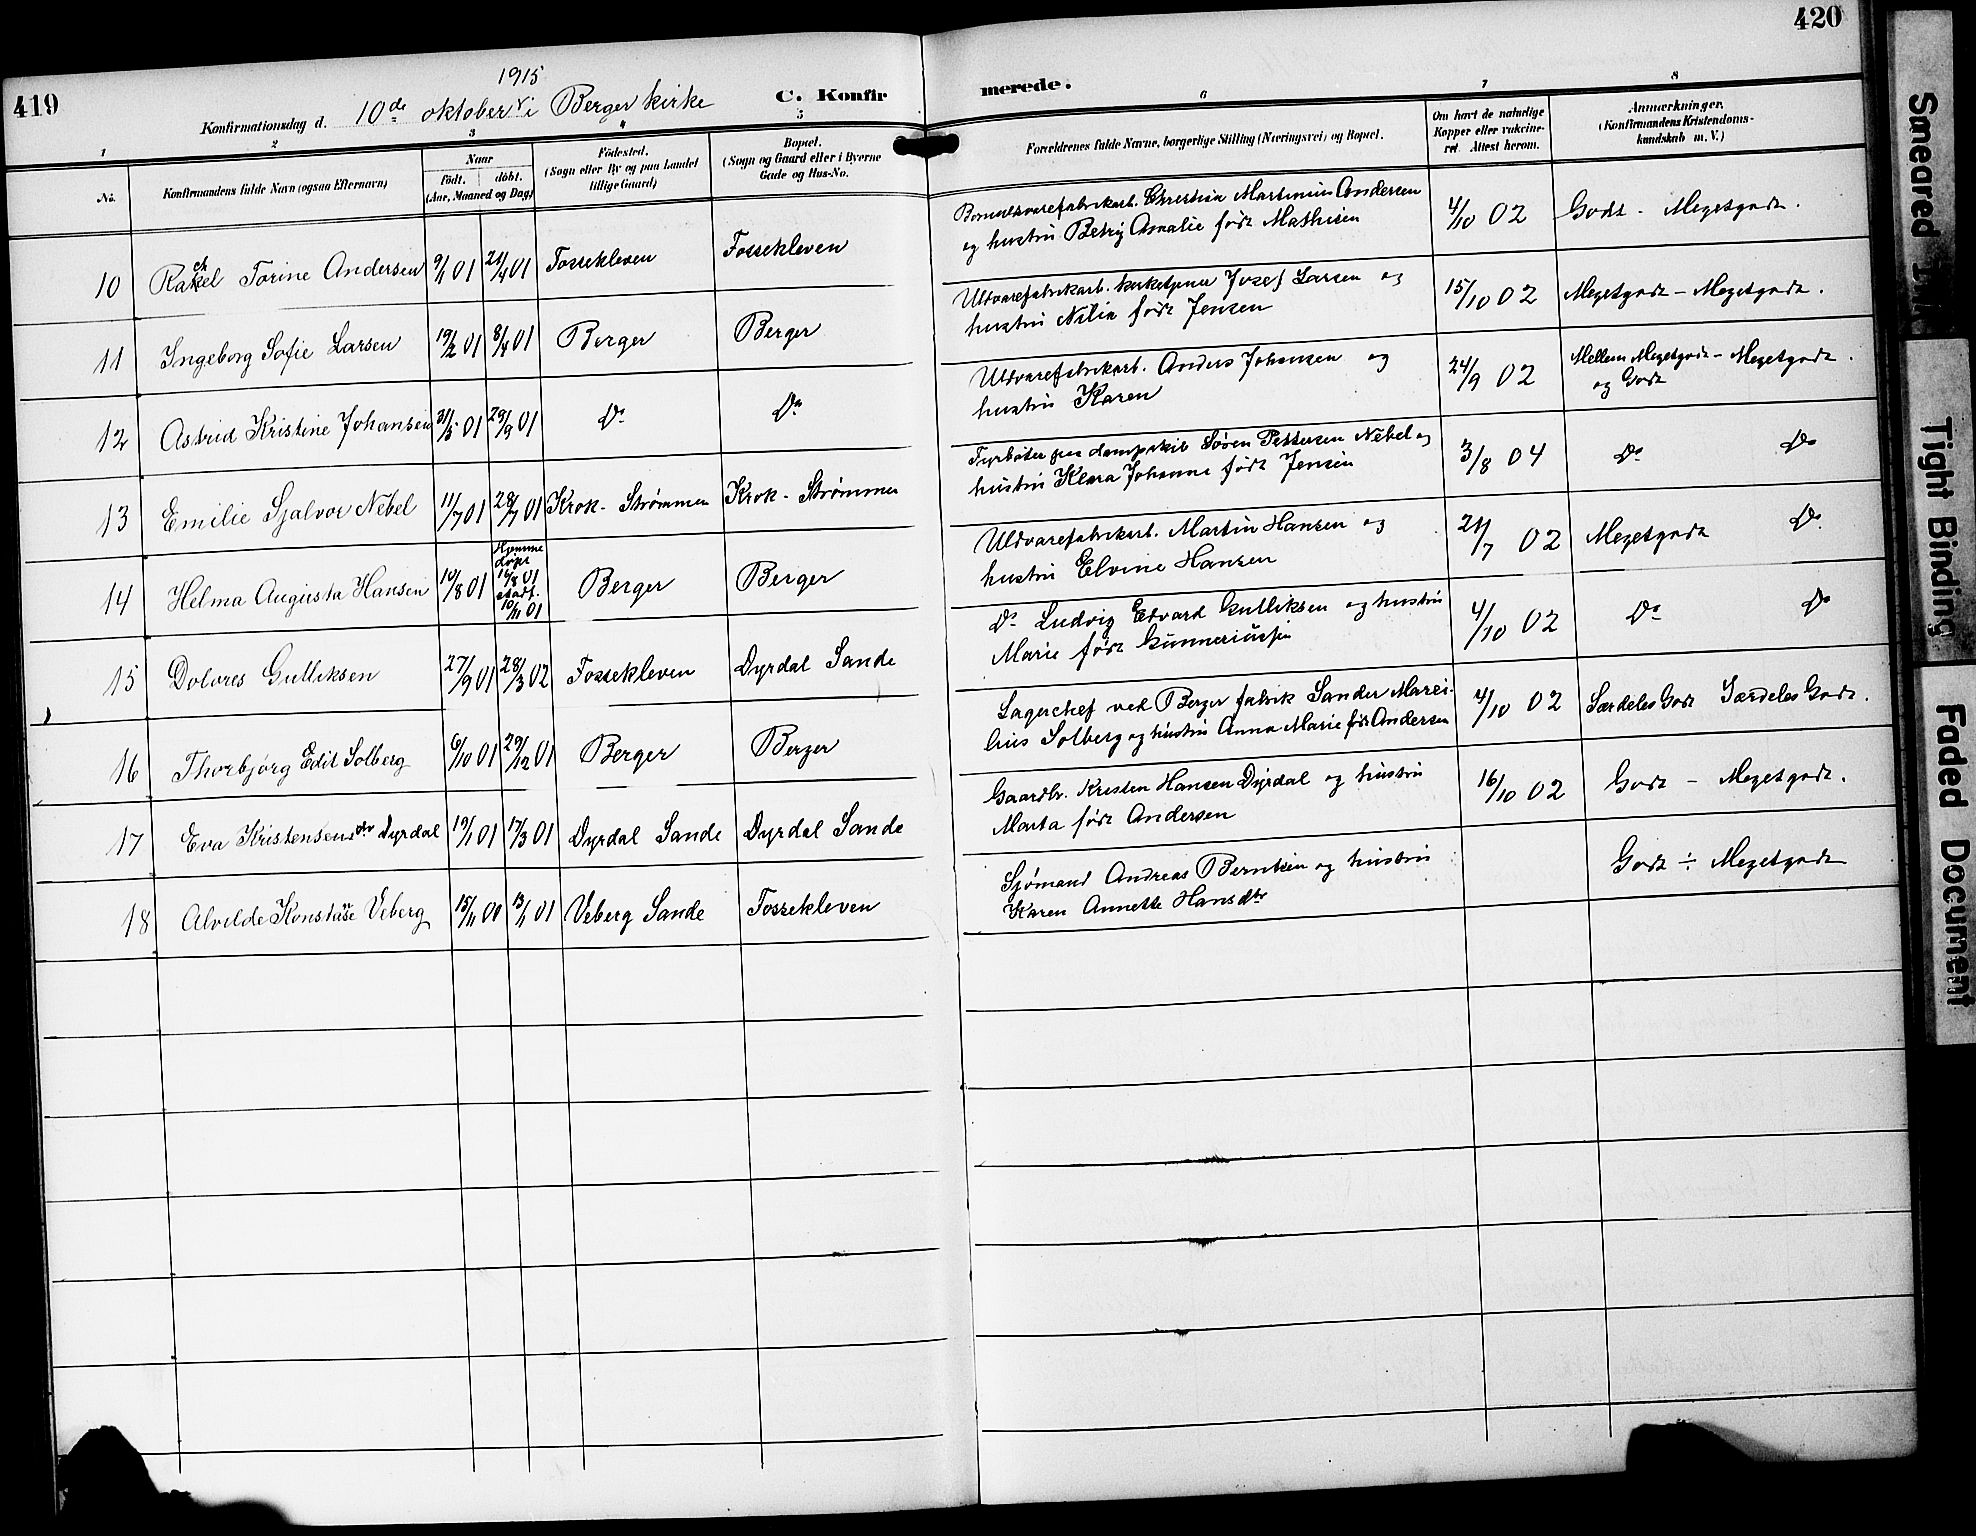 419
420
1915
Konfirmationsdag d. 10de oktober i Berger kirke
C. Konfir
merede.
1 2 3 4 5 6 7 8
No.
Konfirmandens fulde Navn (ogsaa Efternavn)
Naar
født. døbt.
(Aar, Maaned og Dag)
Fødested.
(Sogn eller By og paa Landet
tillige Gaard)
Bopæl.
(Sogn og Gaard eller i Byerne
Gade og Hus-No.
Forældrenes fulde Navne, borgerlige Stilling (Næringsvei) og Bopæl.
Om havt de naturlige
Kopper eller vakcine-
ret. Attest herom.
Anmærkninger.
(Konfirmandens Kristendoms-
kundskab m. V.)
10 Rakel Torine Andersen 9/1 01 21/4 01 Fossekleven Fossekleven
Bomuldsvarefabrikarb. Christian Martinius Andersen
og hustru Betzy Amalie født Mathisen
4/10 02 Godt - Megetgodt.
11 Ingeborg Sofie Larsen 19/2 01 8/4 01 Berger Berger
Uldvarefabrikarb. kirketjener Josef Larsen og
hustru Nilia født Jensen
15/10 02 Megetgodt - Megetgodt.
12 Astrid Kristine Johansen 31/5 01 29/9 01 Do Do
Uldvarefabrikarb. Anders Johansen og
hustru Karen
24/9 02 Mellem Megetgodt - Megetgodt.
og Godt
13 Emilie Sjalvor Nebel 11/7 01 28/7 01 Krok-Strømmen Krok-Strømmen
Fyrbøter paa dampskib Søren Pettersen Nebel og
hustru Klara Johanne født Jensen
3/8 04 Do Do
14 Helma Augusta Hansen 10/8 01 Hjemme
døpt
16/8 01
stadf.
10/11 01
Berger Berger
Uldvarefabrikarb. Martin Hansen og
hustru Elvine Hansen
21/7 02 Megetgodt Do
15 Dolores Gulliksen 27/9 01 28/3 02 Fossekleven Dyrdal Sande
Do Ludvig Edvard Gulliksen og hustru
Marie født Gunneriusen
4/10 02 Do Do
16 Thorbjørg Edit Solberg 6/10 01 29/12 01 Berger Berger
Lagerchef ved Berger fabrik Sander Marei-
lius Solberg og hustru Anna Marie født Andersen
4/10 02 Særdeles Godt Særdeles Godt.
17 Eva Kristensensdtr Dyrdal 19/1 01 17/3 01 Dyrdal Sande Dyrdal Sande
Gaardbr. Kristen Hansen Dyrdal og hustru
Marta født Andersen
16/10 02 Godt - Megetgodt.
18 Alvilde Konstanse Veberg 15/11 00 13/1 01 Veberg Sande Fossekleven
Sjømand Andreas Berntsen og hustru
Karen Annette Hansdtr
Godt ÷ Megetgodt
Smeared Ink
Tight Binding
Faded Document